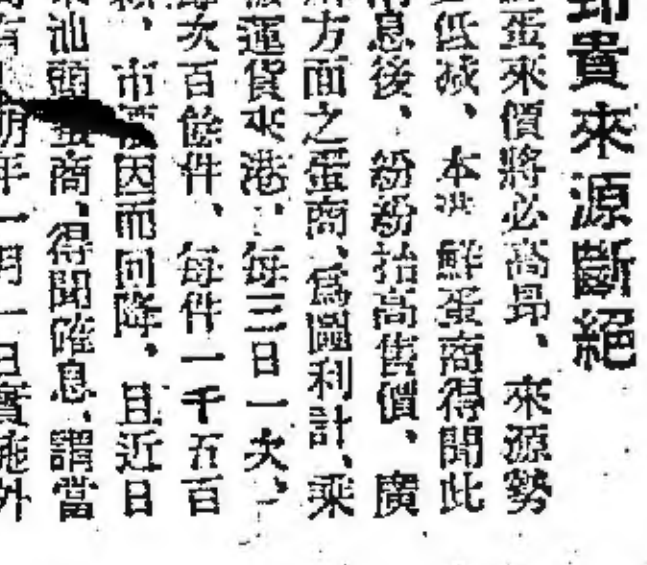 貴來源斷絕
蛋來價將必高昂、來源勢
低減、本港鮮蛋商得聞此
息後、紛紛抬高售價、廣
方面之蛋商、為圖利計、乘
運貨來港、每三日一次、
次百餘件、每件一千五百
市價因而回降、且近日
汕頭蛋商、得聞確息、謂當
年一月一日實施外